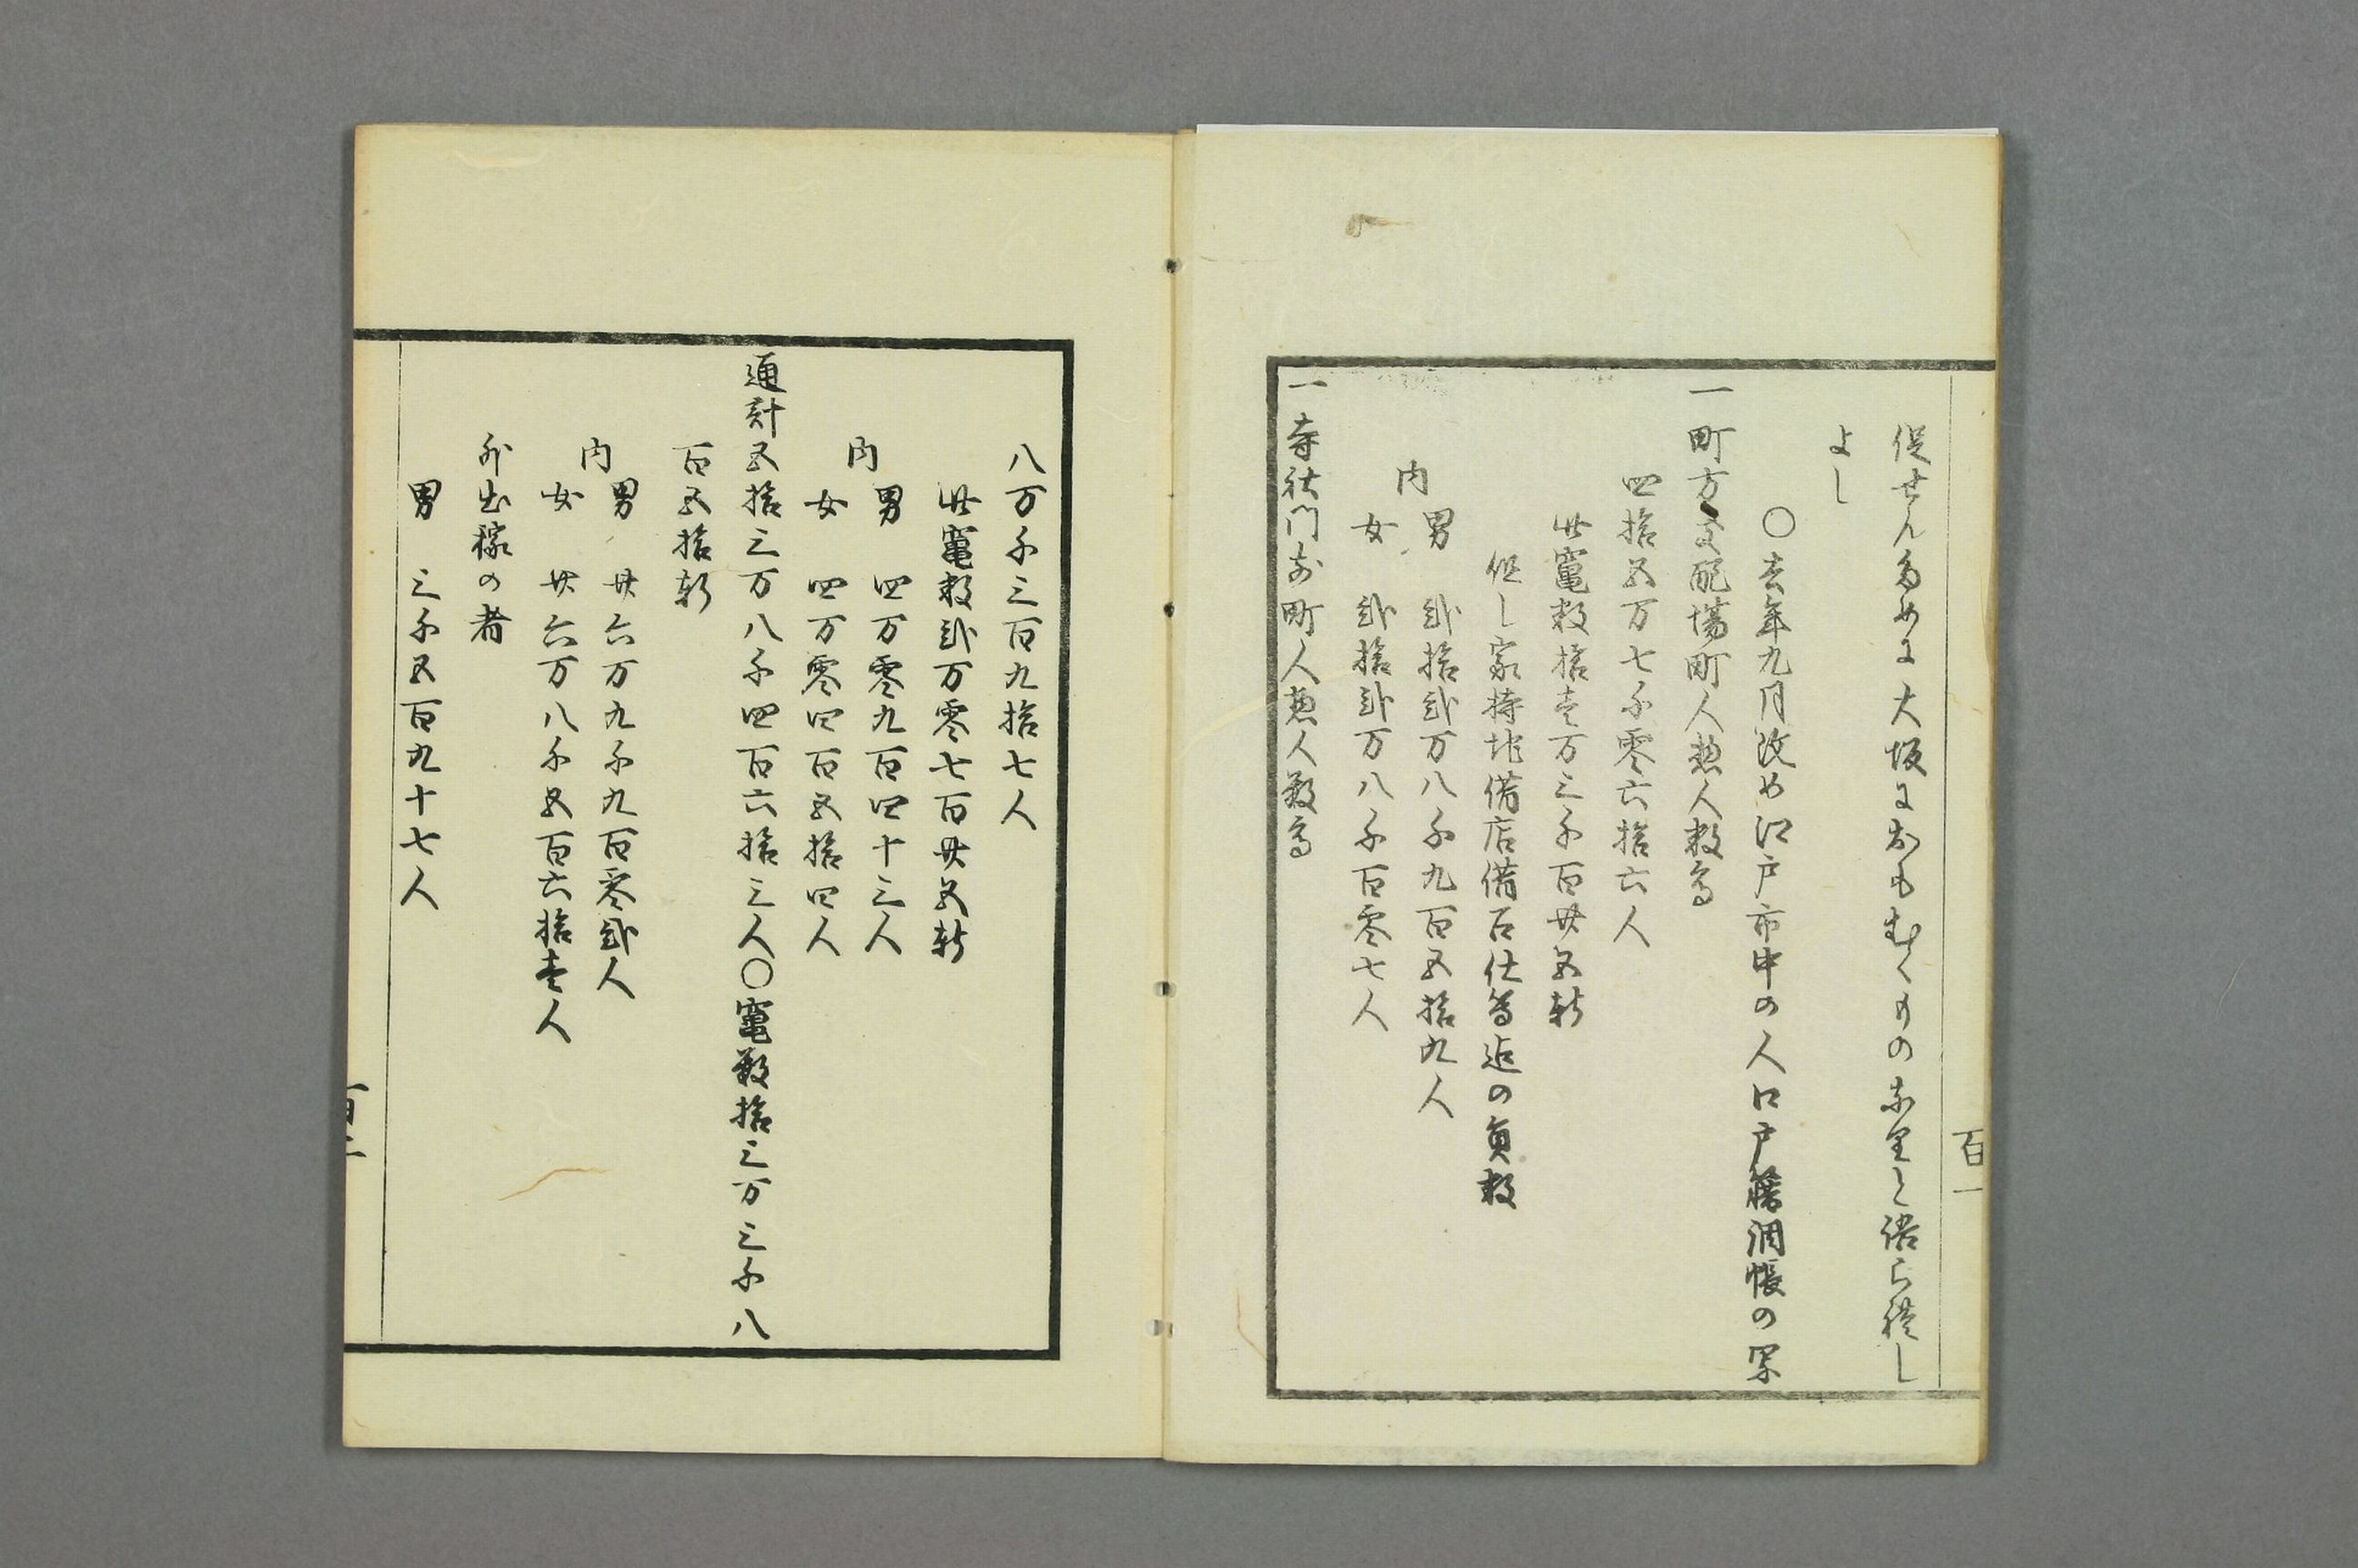 促せん為めに大坂におもむくものあり里と俗らし
よし
○去年九月改め江戸市中の人口戸籍調帳の写
一町方支配場町人惣人数高
四拾五万七千零六拾六人
此竈数拾壱万三千百廿五軒
但し家持地借店借召仕等迄の員数
内
男 弐拾弐万八千九百五拾九人
女 弐拾弐万八千百零七人
一寺社門前町人惣人数高
百一
八万千三百九拾七人
此竈数弐万零七百廿五軒
内
男 四万零九百四十三人
女 四万零四百五拾四人
通計五拾三万八千四百六拾三人○竈数拾三万三千八
百五拾軒
内
男 廿六万九千九百零弐人
女 廿六万八千五百六拾壱人
外出稼の者
男 三千五百九十七人
百二